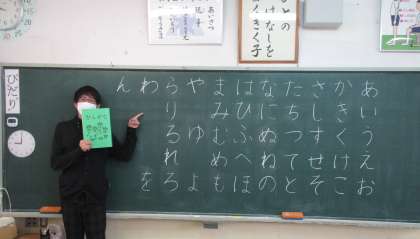 との
はなしを
くきく子
あいさつ
ひだり
あいうえお
かきくけこ
さしすせそ
たちつてと
なにぬねの
はひふへほ
まみむめも
やゆよ
らりるれろ
わを
ん